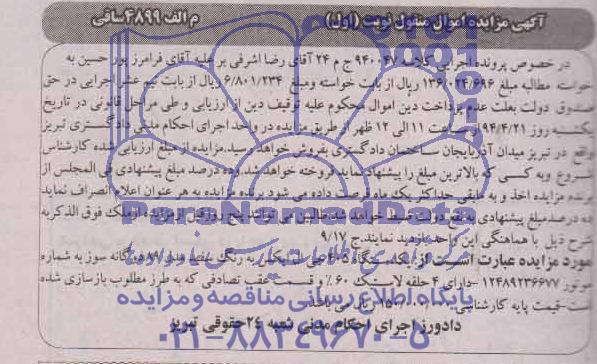 آگهی مزایده اموال منقول نوبت (اول) م الف ۴۸۹۹ساقی
در خصوص پرونده اجرایی کلاسه ۹۴۰۰۴۷ ج م ۲۴ آقای رضا اشرفی بر علیه آقای فرامرز پور حسین به
خواسته مطالبه مبلغ ریال از بابت خواسته ومبلغ ۶/۸۰۱/۲۳۴ ریال از بابت نیم عشر اجرایی در حق
صندوق دولت بعلت عدم پرداخت دین اموال محکوم علیه توقیف دین از ارزیابی و طی مراحل قانونی در تاریخ
یکشنبه روز ۹۴/۴/۲۱ از ساعت ۱۱ الی ۱۲ ظهر از طریق مزایده در واحد اجرای احکام مدنی دادگستری تبریز
واقع در تبریز میدان آذربایجان ساختمان دادگستری بفروش خواهد رسید.مزایده از مبلغ ارزیابی شده کارشناس
شروع وبه کسی که بالاترین مبلغ را پیشنهاد نماید فروخته خواهد شد.وده درصد مبلغ پیشنهادی فی المجلس از
برنده مزایده اخذ و به مابقی حداکثر یک ماه فرصت داده می شود برنده مزایده به هر عنوان اعلام انصراف نماید
ده درصدمبلغ پیشنهادی به نفع دولت ضبط خواهد شد.طالبین می توانند پنج روز قبل از مزایده ازملک فوق الذکر به
شرح ذیل با هماهنگی این واحد بازدید نمایند.ج ۹/۱۷
مورد مزایده عبارت است از یکدستگاه به رنگ سفید مدل ۸۹ دوگانه سوز به شماره
موتور ۱۲۴۸۹۲۳۶۶۷۷ -دارای ۴ حلقه لاستیک ۶۰٪ و قسمت عقب تصادفی که به طرز مطلوب بازسازی شده
است-قیمت پایه کارشناسی ریال می باشد
دادورز اجرای احکام مدنی شعبه ۲۴حقوقی تبریز
ParsNamadData
پایگاه اطلاع رسانی مناقصه ومزایده
۰۲۱-۸۸۳۴۹۶۷۰-۵